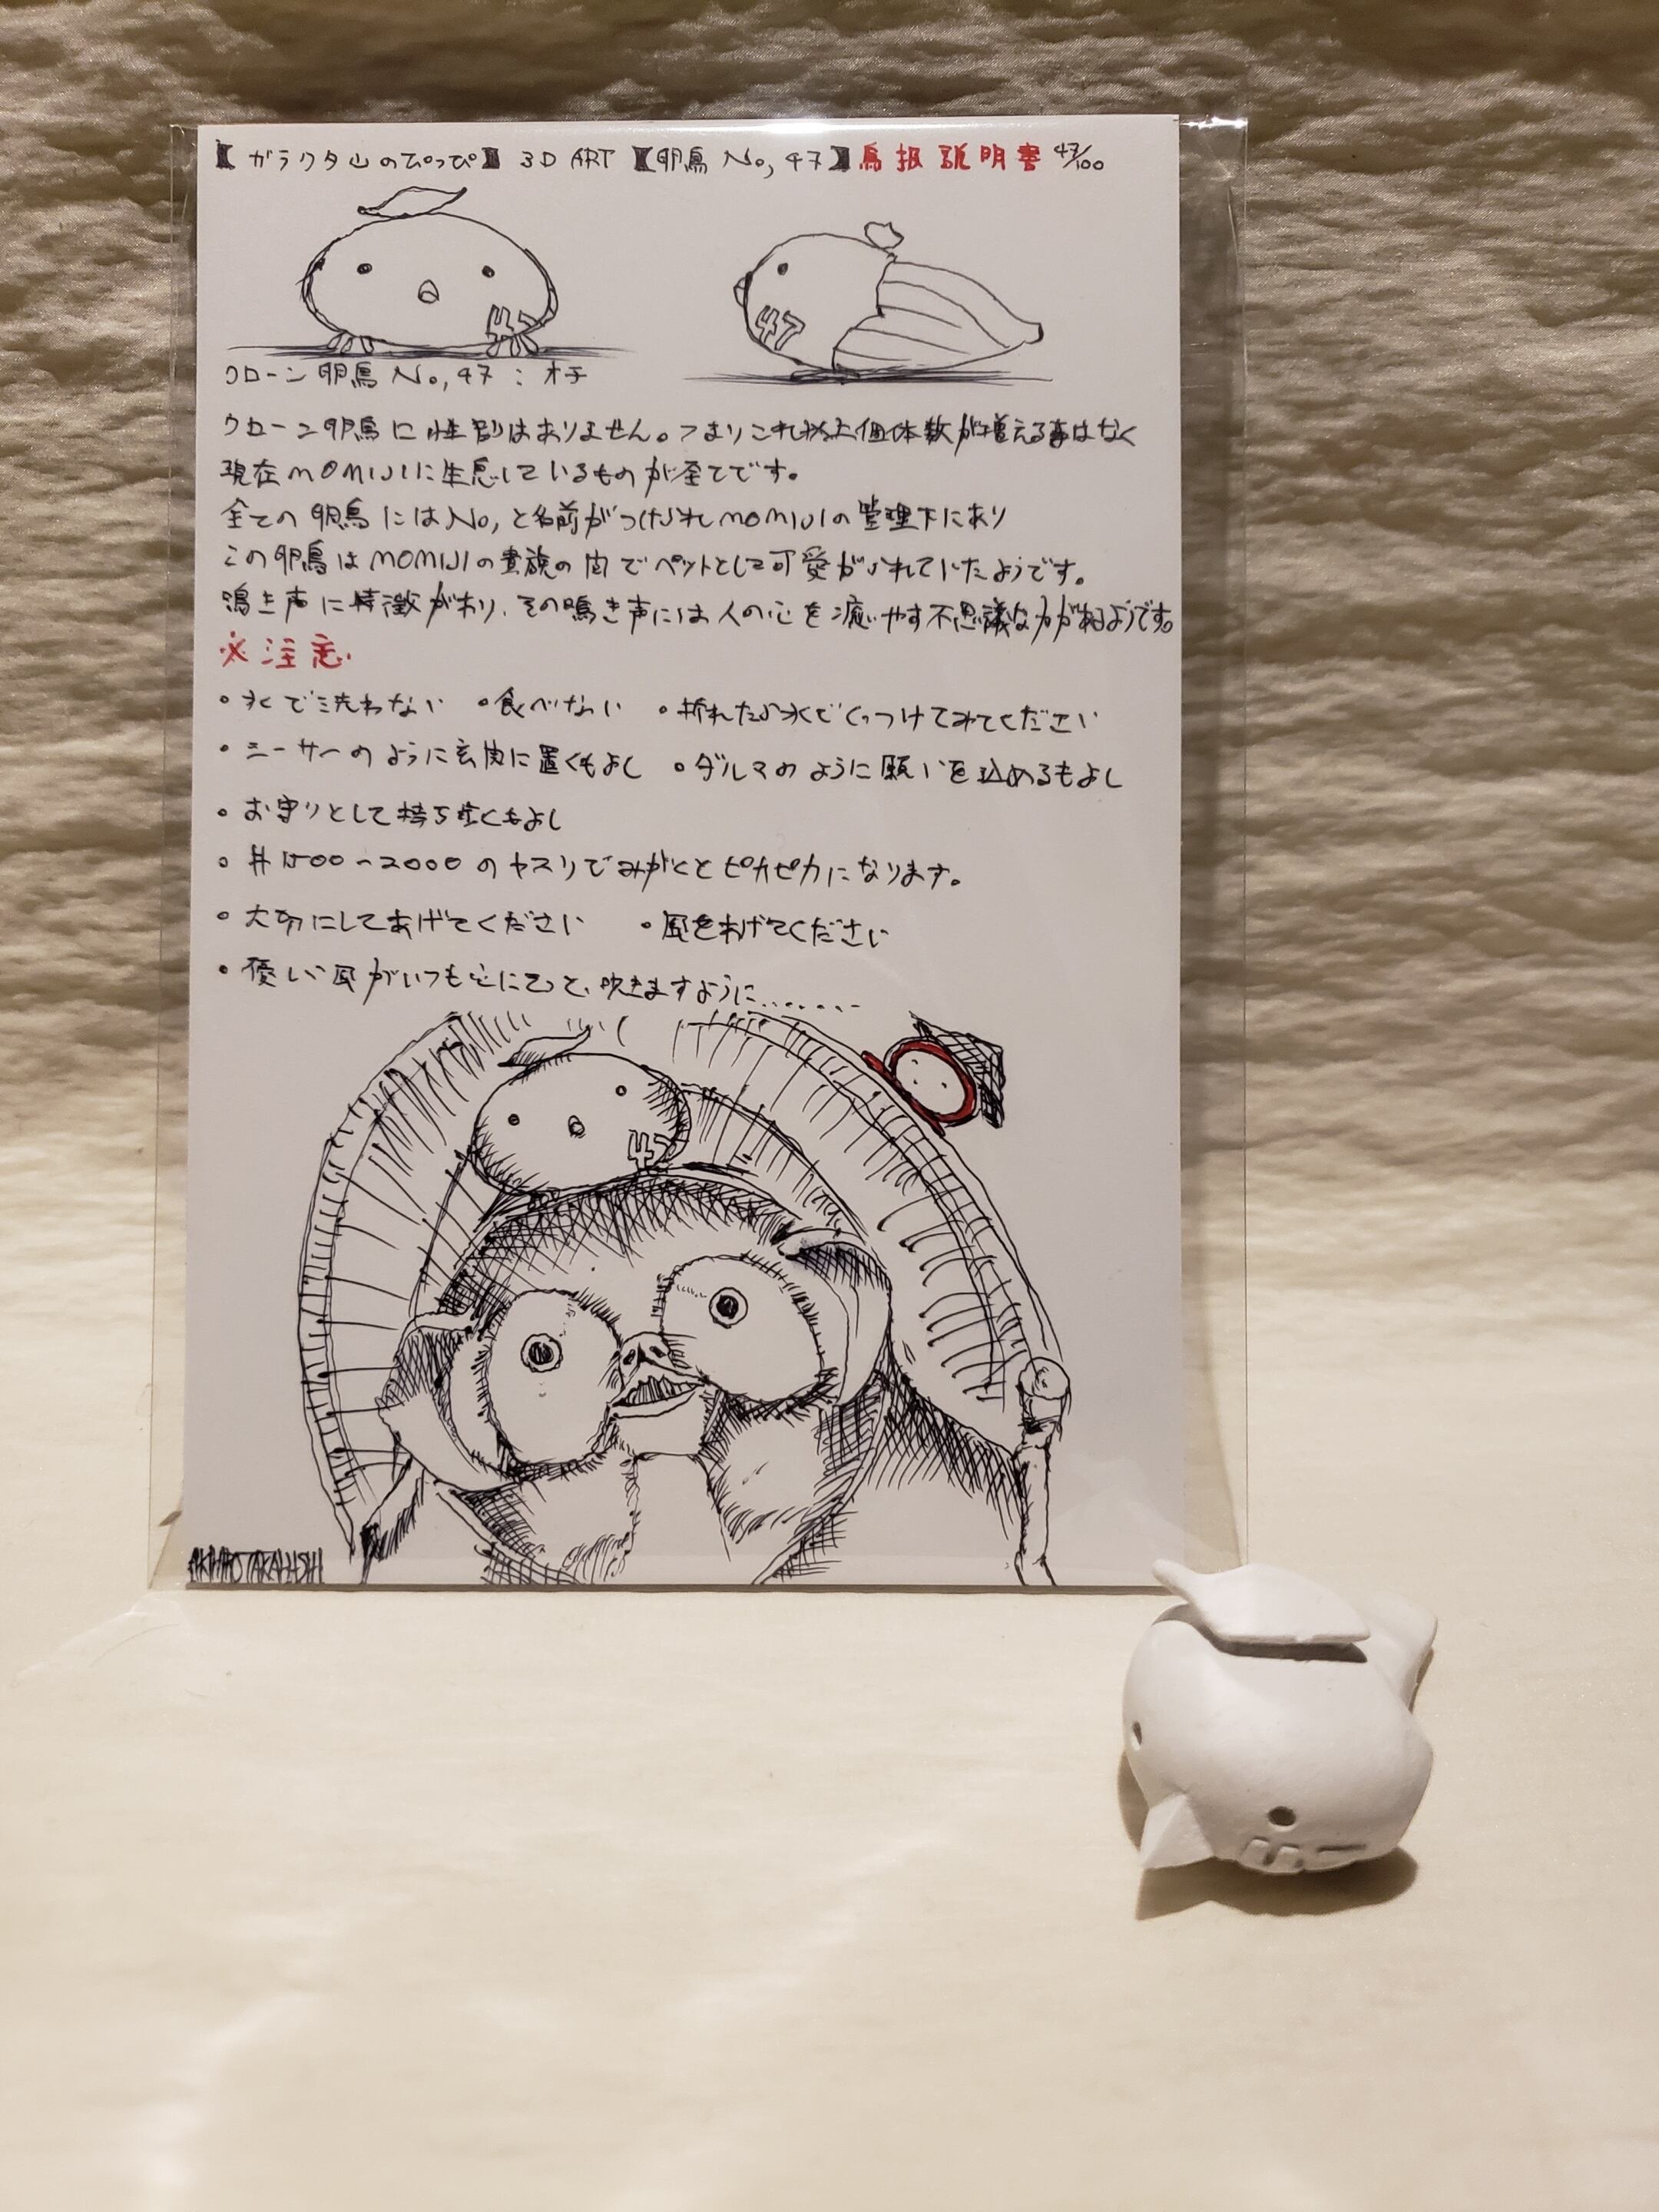 【ガラクタ山のぴっぴ】 3D ART 【卵鳥 No,47】鳥扱説明書 47/100
47
47
クローン卵鳥 No,47 : オチ
クローン卵鳥に性別はありません。つまりこれ以上個体数が増える事はなく
現在MOMIJIに生息しているものが全てです。
全ての卵鳥にはNo,と名前がつけられMOMIJIの管理下にあり
この卵鳥はMOMIJIの貴族の間でペットとして可愛がられていたようです。
鳴き声に特徴があり、その鳴き声には人の心を癒やす不思議な力があるようです。
※注意
・水で洗わない ・食べない ・折れたら水でくっつけてみてください
・シーサーのように玄関に置くもよし ・ダルマのように願いを込めるもよし
・お守りとして持ち歩くもよし
・#1500~2000のヤスリでみがくとピカピカになります。
・大切にしてあげてください ・風をあげてください
・優しい風がいつも心にそっと、吹きますように........
47
AKIHIRO TAKAHASHI